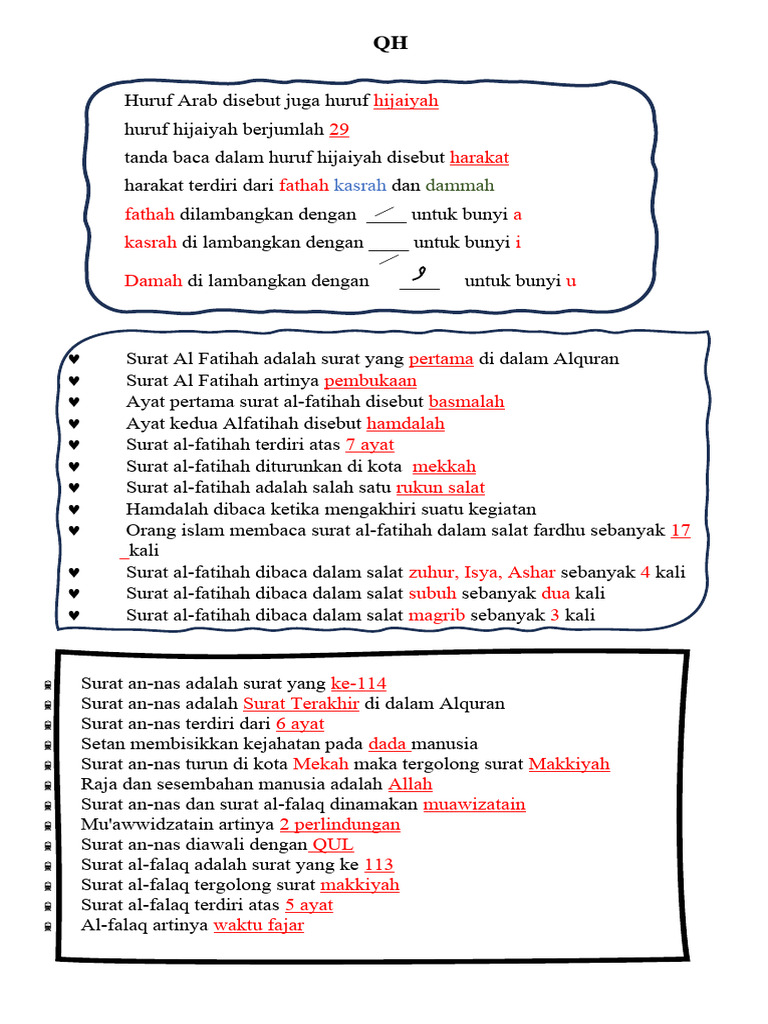 QH
Huruf Arab disebut juga huruf hijaiyah
huruf hijaiyah berjumlah 29
tanda baca dalam huruf hijaiyah disebut harakat
harakat terdiri dari fathah kasrah dan dammah
fathah dilambangkan dengan ____ untuk bunyi a
kasrah di lambangkan dengan ____ untuk bunyi i
Damah di lambangkan dengan ____ untuk bunyi u
♥ Surat Al Fatihah adalah surat yang pertama di dalam Alquran
♥ Surat Al Fatihah artinya pembukaan
♥ Ayat pertama surat al-fatihah disebut basmalah
♥ Ayat kedua Alfatihah disebut hamdalah
♥ Surat al-fatihah terdiri atas 7 ayat
♥ Surat al-fatihah diturunkan di kota mekkah
♥ Surat al-fatihah adalah salah satu rukun salat
♥ Hamdalah dibaca ketika mengakhiri suatu kegiatan
♥ Orang islam membaca surat al-fatihah dalam salat fardhu sebanyak 17
_kali
♥ Surat al-fatihah dibaca dalam salat zuhur, Isya, Ashar sebanyak 4 kali
♥ Surat al-fatihah dibaca dalam salat subuh sebanyak dua kali
♥ Surat al-fatihah dibaca dalam salat magrib sebanyak 3 kali
Surat an-nas adalah surat yang ke-114
Surat an-nas adalah Surat Terakhir di dalam Alquran
Surat an-nas terdiri dari 6 ayat
Setan membisikkan kejahatan pada dada manusia
Surat an-nas turun di kota Mekah maka tergolong surat Makkiyah
Raja dan sesembahan manusia adalah Allah
Surat an-nas dan surat al-falaq dinamakan muawizatain
Mu'awwidzatain artinya 2 perlindungan
Surat an-nas diawali dengan QUL
Surat al-falaq adalah surat yang ke 113
Surat al-falaq tergolong surat makkiyah
Surat al-falaq terdiri atas 5 ayat
Al-falaq artinya waktu fajar